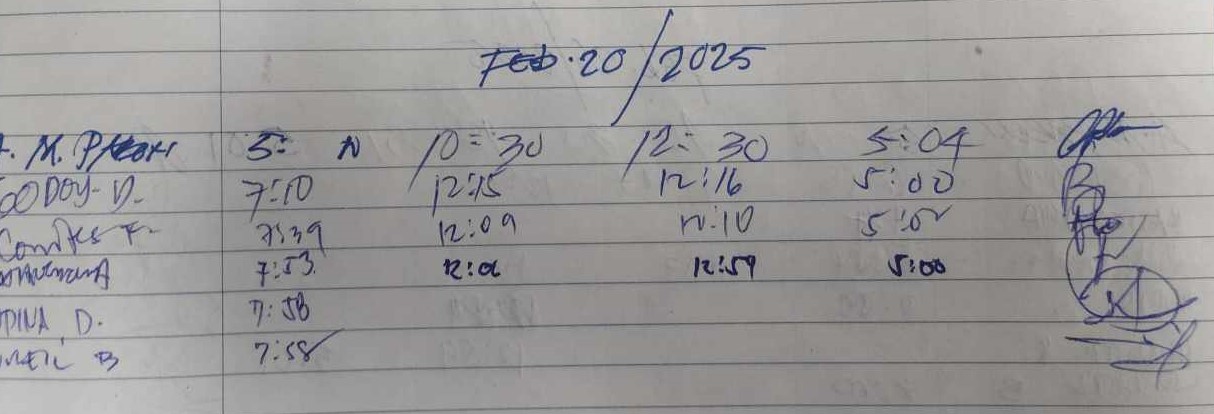 Feb. 20/2025
M. 5: N 10:30 12:30 5:04
GODOY D. 7:10 12:15 12:16 5:00
7:39 12:09 12:10 5:02
7:53 12:01 12:59 5:00
PINA D. 7:58
B 7:58